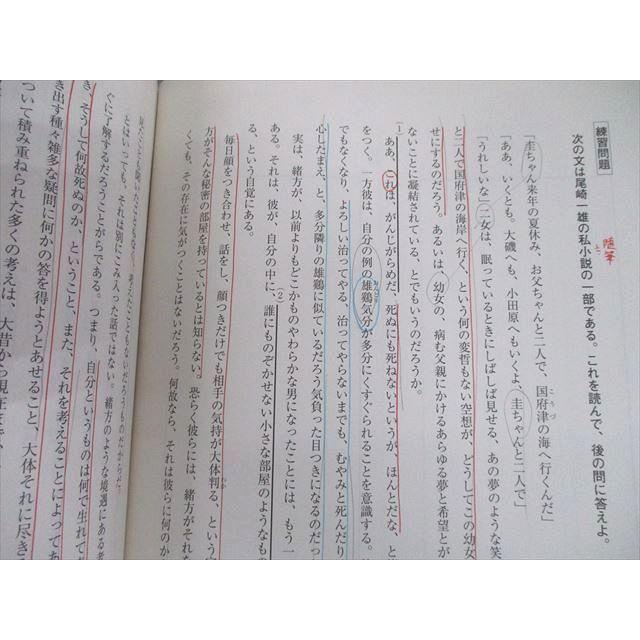 練習問題
次の文は尾崎一雄の私小説の一部である。これを読んで、後の問に答えよ。
随筆
「圭ちゃん来年の夏休み、お父ちゃんと二人で、国府津の海へ行くんだ」
こうづ
「ああ、いくとも。大磯へも、小田原へもいくよ、圭ちゃんと二人で」
「うれしいな」二女は、眠っているときにしばしば見せる、あの夢のような笑
と二人で国府津の海岸へ行く、という何の変哲もない空想が、どうしてこの幼女
せにするのだろう。あるいは、幼女の、病む父親にかけるあらゆる夢と希望とが
ないことに凝結されている、とでもいうのだろうか。
(1)
ああ、これは、がんじがらめだ、死ぬにも死ねないというが、ほんとだな、と
をつく。一方彼は、自分の例の雄鶏気分が多分にくすぐられることを意識する。
でもなくなり、よろしい治ってやる、治ってやらないまでも、むやみと死んだり
心したまえ、と、多分隣りの雄鶏に似ているだろう気負った目つきになるのだっ
実は、緒方が、以前よりもどこかものやわらかな男になったことには、もう一
(2)
ある。それは、彼が、自分の中に、誰にものぞかせない小さな部屋のようなもの
る、という自覚にある。
毎日顔をつき合わせ、話をし、顔つきだけでも相手の気持が大体判る、という
方がそんな秘密の部屋を持っているとは知らない。恐らく彼らには、緒方がそれ
くても、その存在に気がつくことはないだろう。何故なら、それは彼らに何のか
とはいっても、それは別にこみ入った話ではない。緒方のような境遇にある者
ぐに了解するだろうことがらである。つまり、自分というものは何で生れて
き、そうして何故死ぬのか、ということ、また、それを考えることによってあ
き出す種々雑多な疑問に何かの答を得ようとあせること、大体それに尽き
ついて積み重ねられた多くの考えは、大昔から現在